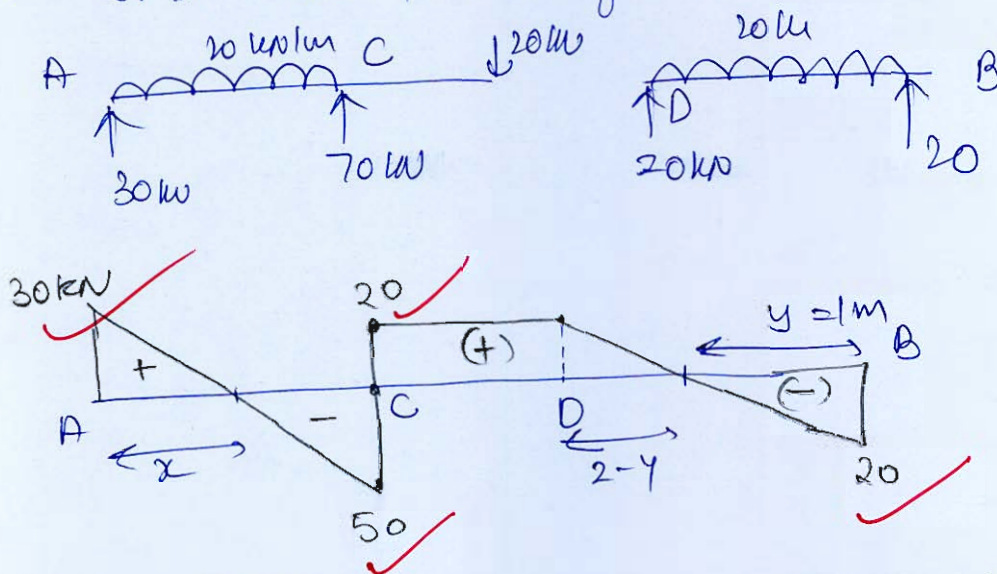 20 kN/m C 20 kN
A
30 kN 70 kN
20 kN
D B
20 kN 20
30 kN 20 y = 1m
+ (+) B
A - C D (-)
x 2-y
50 20